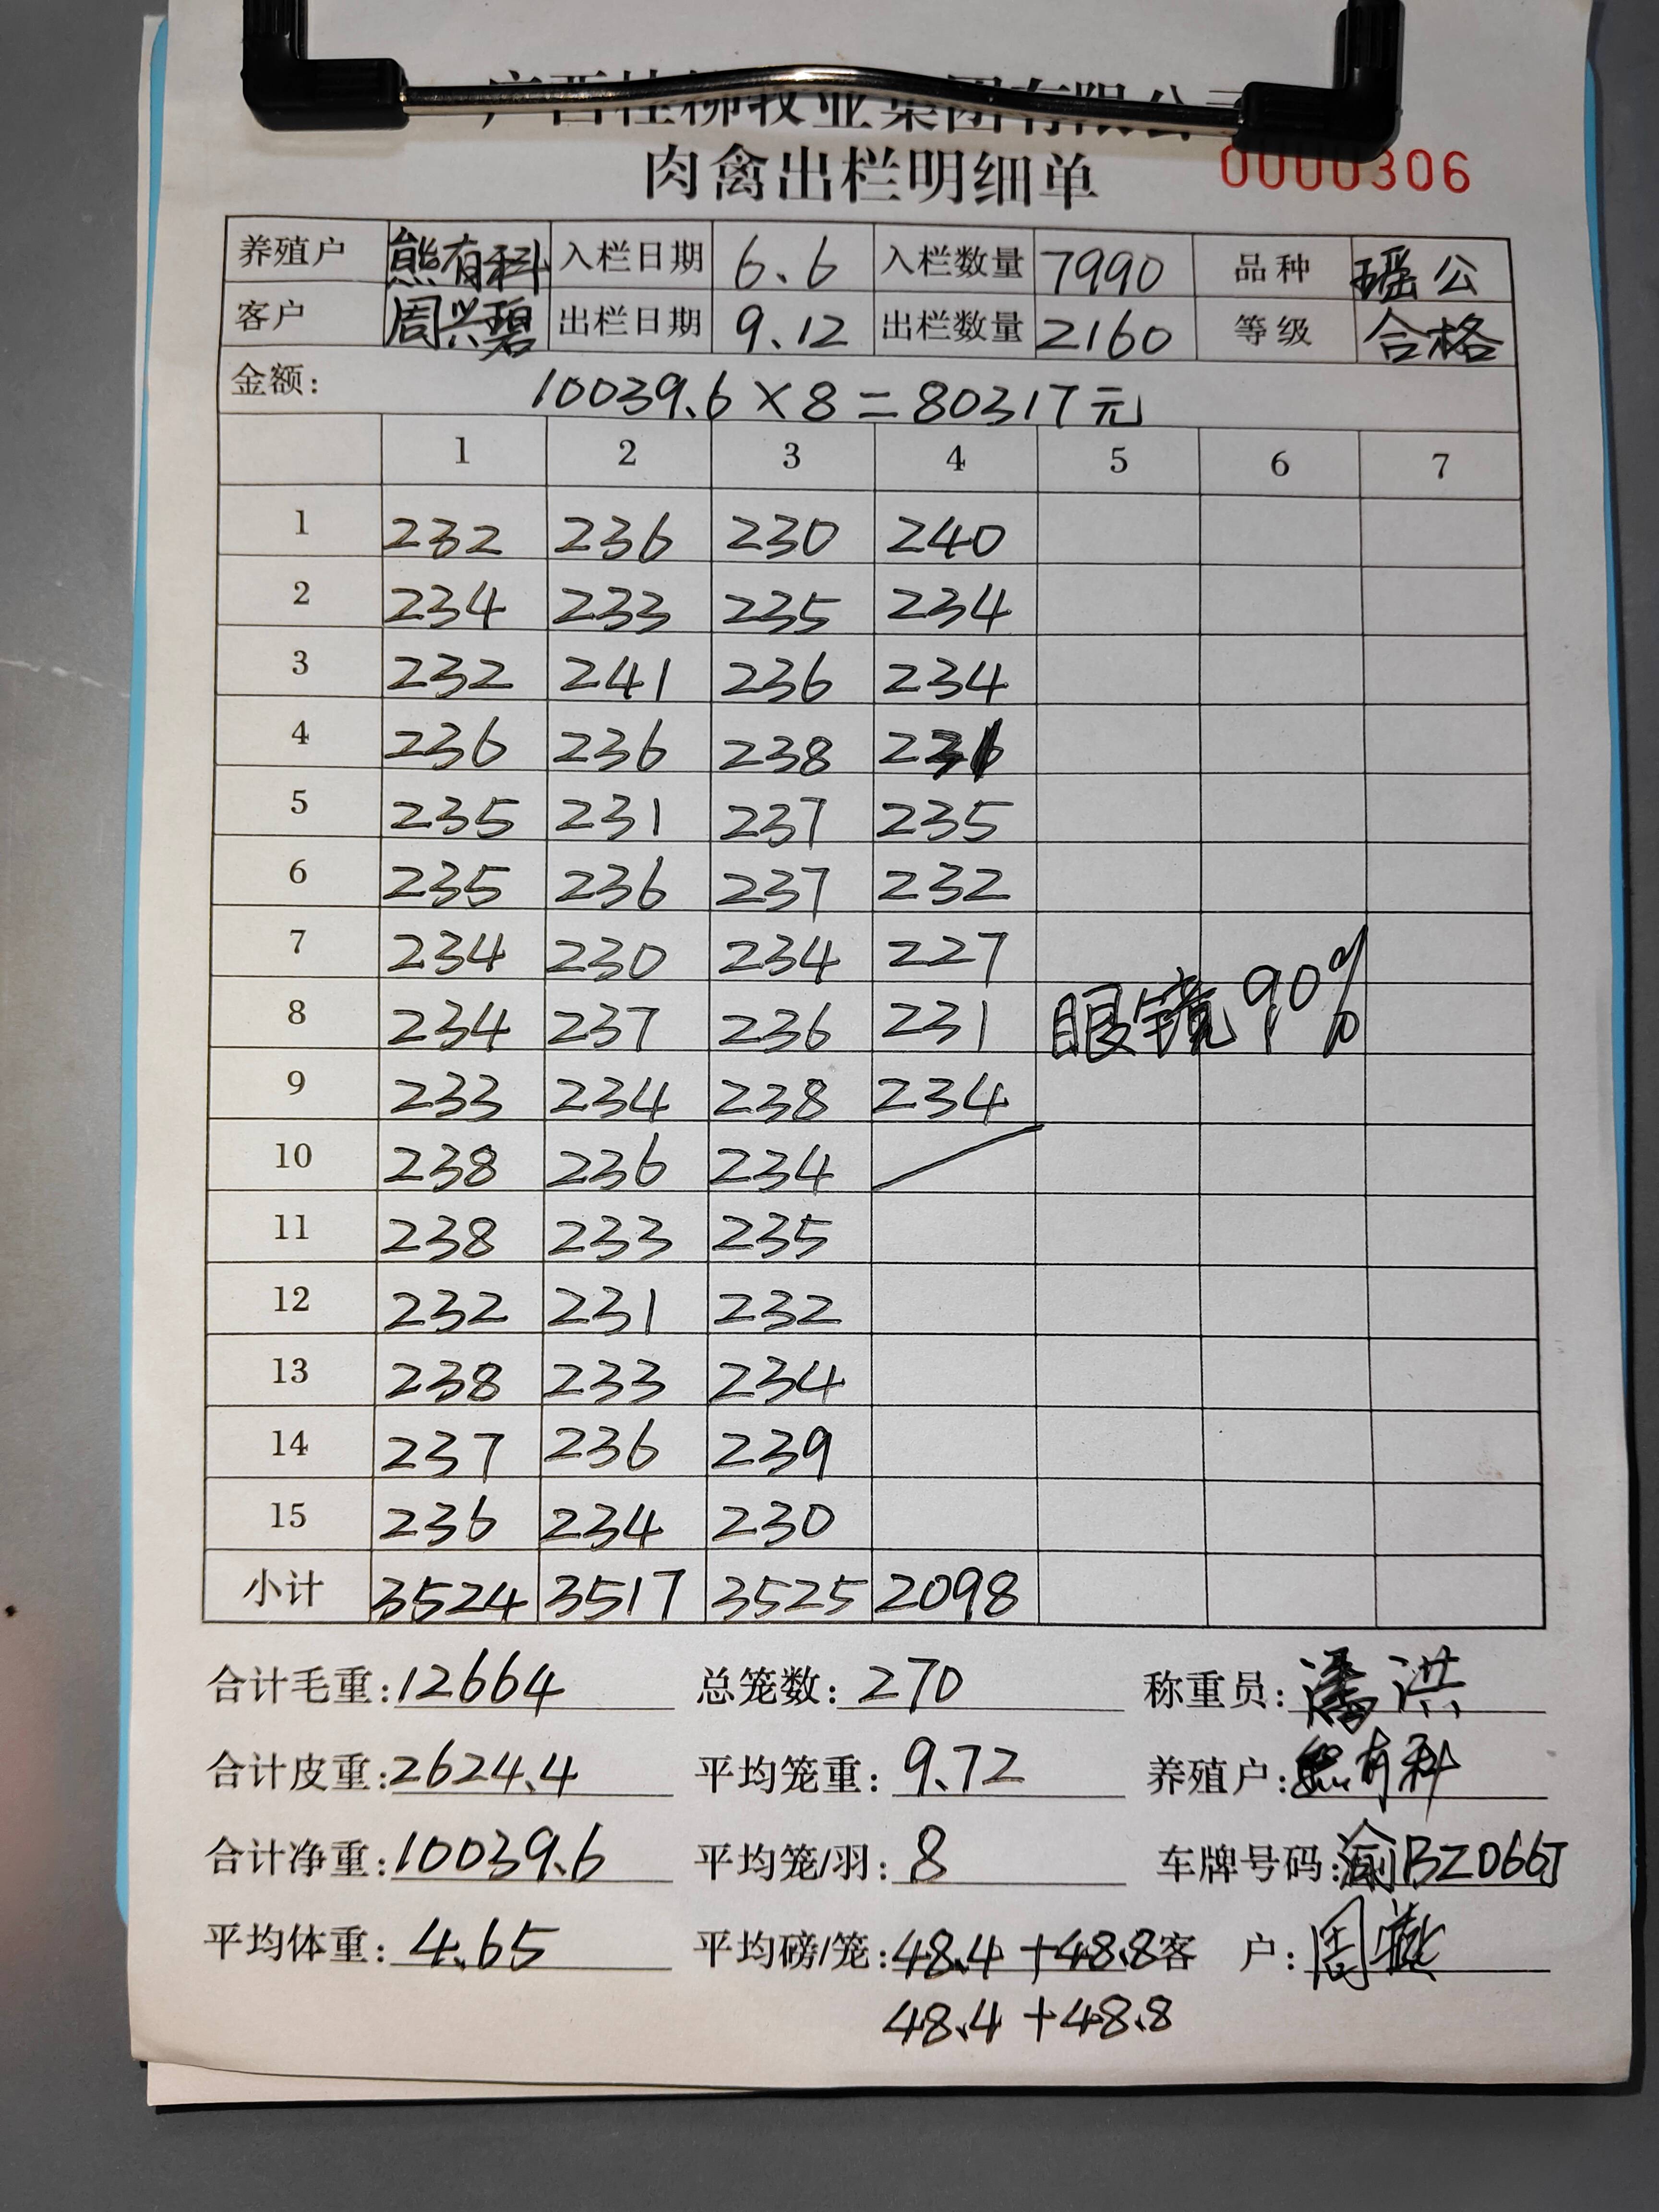 广西桂柳牧业集团有限公司
肉禽出栏明细单 0000306
养殖户 熊有科 入栏日期 6.6 入栏数量 7990 品种 瑶公
客户 周兴碧 出栏日期 9.12 出栏数量 2160 等级 合格
金额: 10039.6×8=80317元
1 2 3 4 5 6 7
1 232 236 230 240
2 234 233 235 234
3 232 241 236 234
4 236 236 238 231
5 235 231 237 235
6 235 236 237 232
7 234 230 234 227
8 234 237 236 231 眼镜90%
9 233 234 238 234
10 238 236 234
11 238 233 235
12 232 231 232
13 238 233 234
14 237 236 239
15 236 234 230
小计 3524 3517 3525 2098
合计毛重:12664 总笼数:270 称重员:潘洪
合计皮重:2624.4 平均笼重:9.72 养殖户:熊有科
合计净重:10039.6 平均笼/羽:8 车牌号码:渝BZ066J
平均体重:4.65 平均磅/笼:48.4+48.8 客 户:周
48.4+48.8